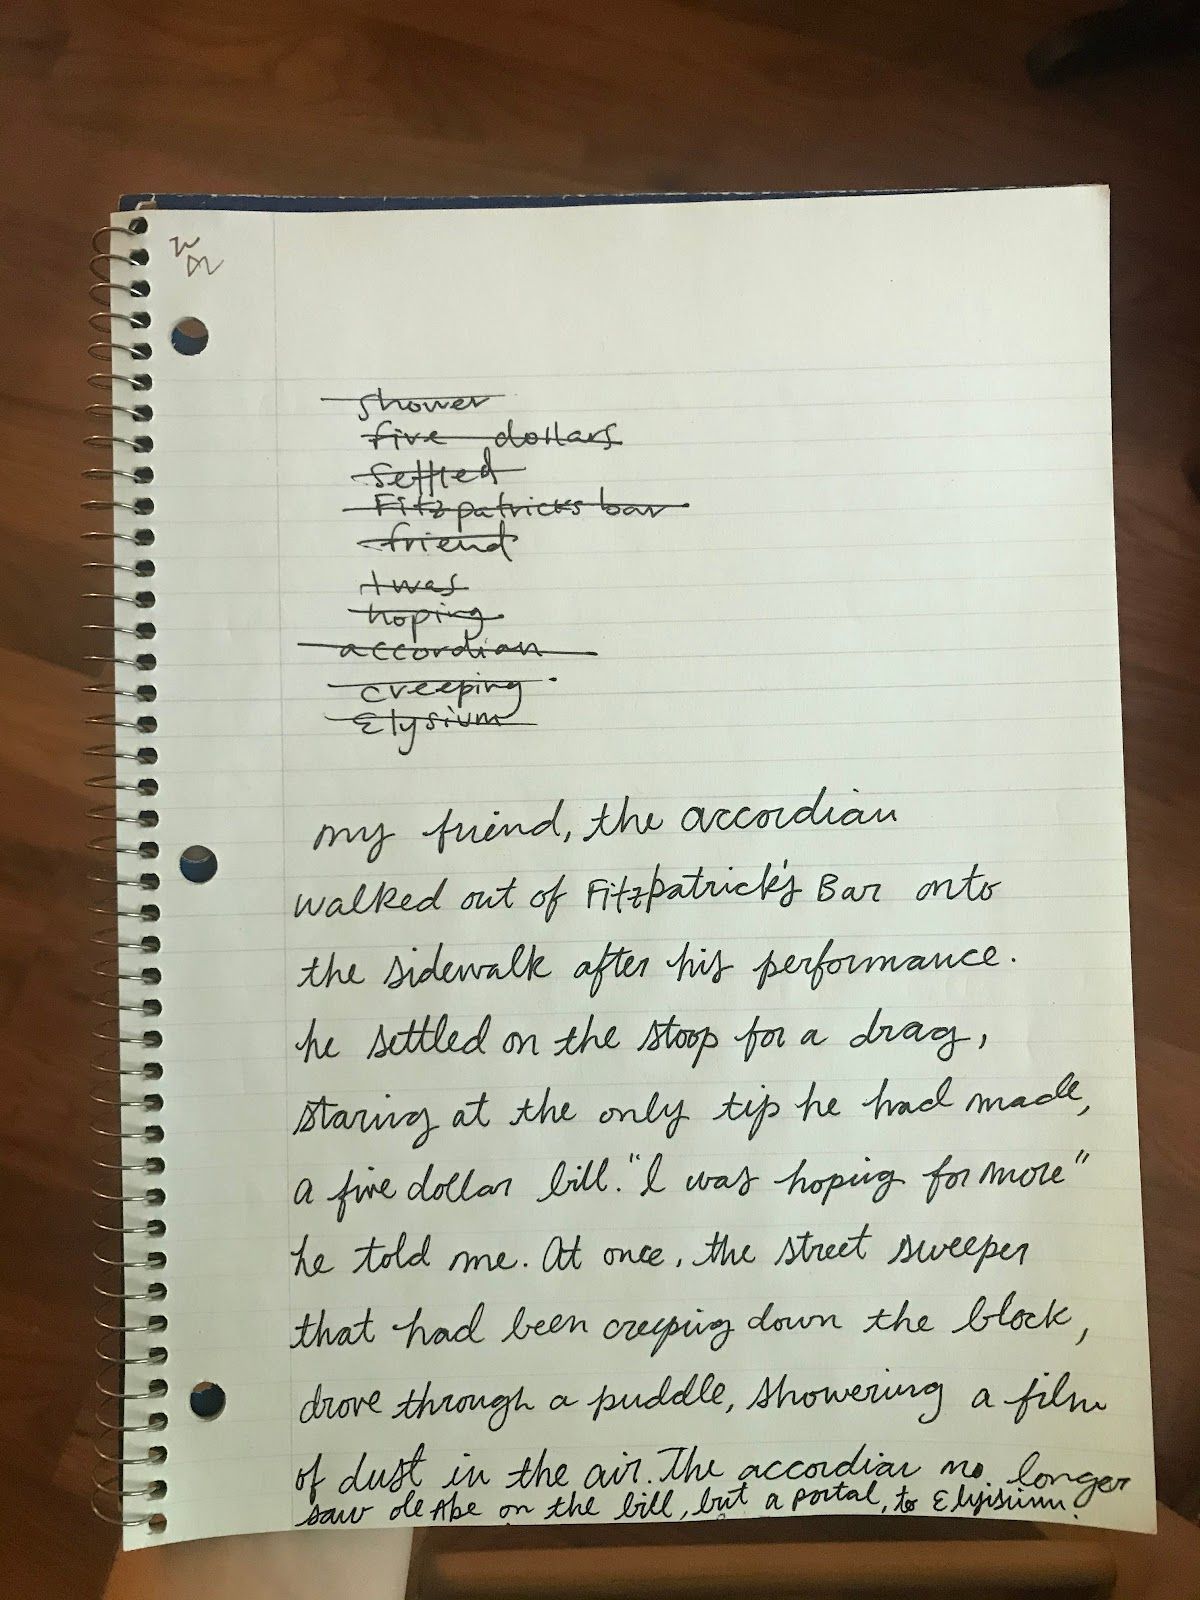 shower
five dollars
settled
Fitzpatricks bar
friend
I was
hoping
accordian
creeping
Elysium
my friend, the accordian
walked out of Fitzpatrick's Bar onto
the sidewalk after his performance.
he settled on the stoop for a drag,
staring at the only tip he had made,
a five dollar bill. "I was hoping for more"
he told me. At once, the street sweeper
that had been creeping down the block,
drove through a puddle, showering a film
of dust in the air. The accordian no longer
saw ole Abe on the bill, but a portal, to Elyisium.